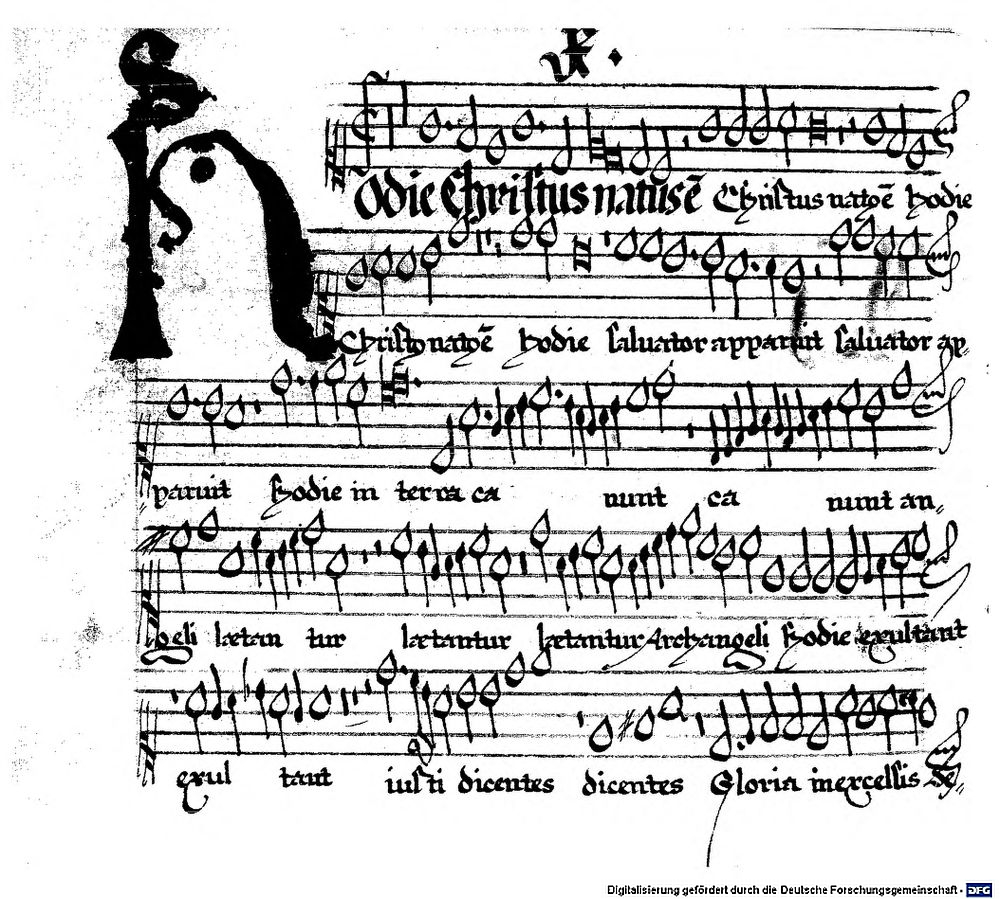 Hodie Christus natusē Christus natꝰē hodie
Christꝰ natꝰē hodie saluator apparuit saluator ap
paruit hodie in terra ca nunt ca nunt an⸗
geli lætan tur lætantur lætantur Archangeli hodie exultant
exul tant iusti dicentes dicentes Gloria in excelsis de⸗
Digitalisierung gefördert durch die Deutsche Forschungsgemeinschaft - DFG